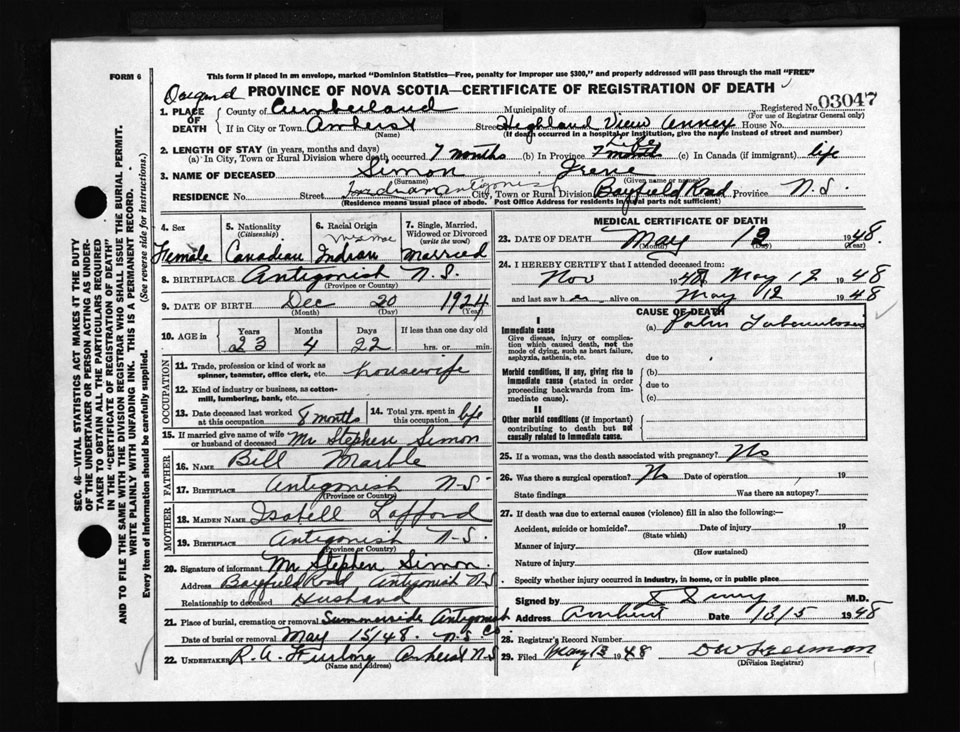 FORM 6
This form if placed in an envelope, marked "Dominion Statistics—Free, penalty for improper use $300," and properly addressed will pass through the mail "FREE"
PROVINCE OF NOVA SCOTIA—CERTIFICATE OF REGISTRATION OF DEATH
1. PLACE OF DEATH County of Cumberland Municipality of Registered No. 03047
(For use of Registrar General only)
If in City or Town Amherst Street Highland View Annex House No.
(Name) (If death occurred in a hospital or institution, give the name instead of street and number)
2. LENGTH OF STAY (in years, months and days)
(a) In City, Town or Rural Division where death occurred 7 months (b) In Province 7 months Life (c) In Canada (if immigrant) life
3. NAME OF DECEASED Simon Irene
(Surname) (Given name or names)
RESIDENCE No. Street Indian Antigonish City, Town or Rural Division Bayfield Road Province N.S.
(Residence means usual place of abode. Post Office Address for residents in rural parts not sufficient)
4. Sex Female
5. Nationality (Citizenship) Canadian
6. Racial Origin Micmac Indian
7. Single, Married, Widowed or Divorced (write the word) Married
8. BIRTHPLACE Antigonish N.S.
(Province or County)
9. DATE OF BIRTH Dec 20 1924
(Month) (Day) (Year)
10. AGE IN Years Months Days If less than one day old
23 4 22 hrs. or min.
OCCUPATION
11. Trade, profession or kind of work as spinner, teamster, office clerk, etc. housewife
12. Kind of industry or business, as cotton-mill, lumbering, bank, etc.
13. Date deceased last worked at this occupation 8 months
14. Total yrs. spent in this occupation life
15. If married give name of wife or husband of deceased Mr Stephen Simon
FATHER
16. NAME Bill Marble
17. BIRTHPLACE Antigonish N-S.
(Province or County)
MOTHER
18. MAIDEN NAME Isabell Lafford
19. BIRTHPLACE Antigonish N-S.
(Province or County)
20. Signature of informant Mr Stephen Simon.
Address Bayfield Road Antigonish N.S
Relationship to deceased Husband
21. Place of burial, cremation or removal Summerside Antigonish Co.
Date of burial or removal May 15/48. N.S.
22. UNDERTAKER R. A. Furlong Amherst N.S
(Name and address)
MEDICAL CERTIFICATE OF DEATH
23. DATE OF DEATH May 12 1948.
(Month) (Day) (Year)
24. I HEREBY CERTIFY that I attended deceased from:
Nov 1948 May 12 1948
and last saw h er alive on May 12 1948
CAUSE OF DEATH
I
Immediate cause
Give disease, injury or complication which caused death, not the mode of dying, such as heart failure, asphyxia, asthenia, etc.
(a) Pulm Tuberculosis
due to
Morbid conditions, if any, giving rise to immediate cause (stated in order proceeding backwards from immediate cause).
(b)
due to
(c)
II
Other morbid conditions (if important) contributing to death but not causally related to immediate cause.
25. If a woman, was the death associated with pregnancy? No
26. Was there a surgical operation? No Date of operation , 19
State findings Was there an autopsy?
27. If death was due to external causes (violence) fill in also the following:—
Accident, suicide or homicide? Date of injury 19
(State which)
Manner of injury
(How sustained)
Nature of injury
Specify whether injury occurred in industry, in home, or in public place
Signed by M.D.
Address Amherst Date 13/5 1948
28. Registrar's Record Number
29. Filed May 13 1948
(Division Registrar)
SEC. 46—VITAL STATISTICS ACT MAKES IT THE DUTY
OF THE UNDERTAKER OR PERSON ACTING AS UNDER-
TAKER TO OBTAIN ALL THE PARTICULARS REQUIRED
IN THE "CERTIFICATE OF REGISTRATION OF DEATH"
AND TO FILE THE SAME WITH THE DIVISION REGISTRAR WHO SHALL ISSUE THE BURIAL PERMIT.
WRITE PLAINLY WITH UNFADING INK. THIS IS A PERMANENT RECORD.
Every item of Information should be carefully supplied. (See reverse side for instructions.)